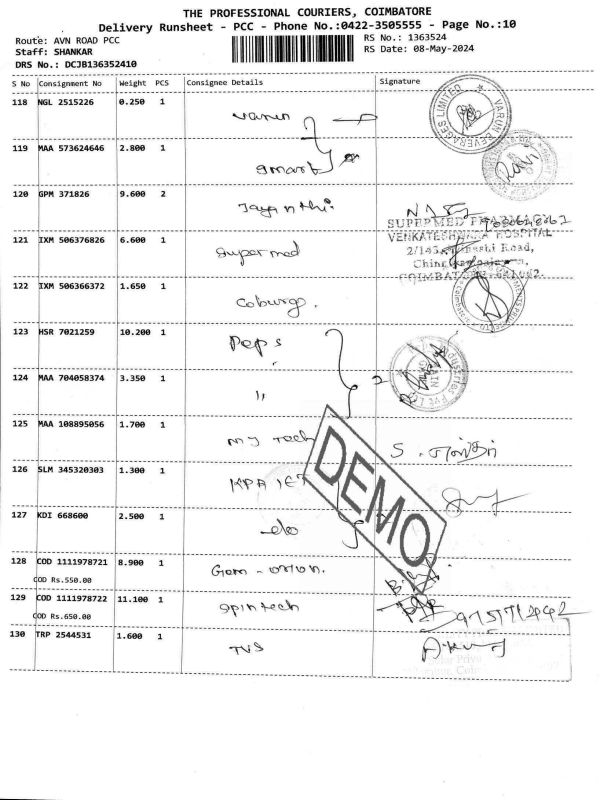 THE PROFESSIONAL COURIERS, COIMBATORE
Delivery Runsheet - PCC - Phone No.:0422-3505555 - Page No.:10
Route: AVN ROAD PCC
RS No.: 1363524
Staff: SHANKAR
RS Date: 08-May-2024
DRS No.: DCJB136352410
S No Consignment No Weight PCS Consignee Details Signature
118 NGL 2515226 0.250 1 Varun
VARUN BEVERAGES LIMITED
119 MAA 573624646 2.800 1 Smart
120 GPM 371826 9.600 2 Jayanthi
SUPERMED
121 IXM 506376826 6.600 1 Supermed
VENKATESHWARA HOSPITAL
Road,
122 IXM 506366372 1.650 1 Coburgo.
123 HSR 7021259 10.200 1 Peps
124 MAA 704058374 3.350 1 "
125 MAA 108895056 1.700 1 my tech
126 SLM 345320303 1.300 1 KPR IET
127 KDI 668600 2.500 1 -do
DEMO
128 COD 1111978721 8.900 1 Gem - orion.
COD Rs.550.00
129 COD 1111978722 11.100 1 Spintech
COD Rs.650.00
130 TRP 2544531 1.600 1 TVS